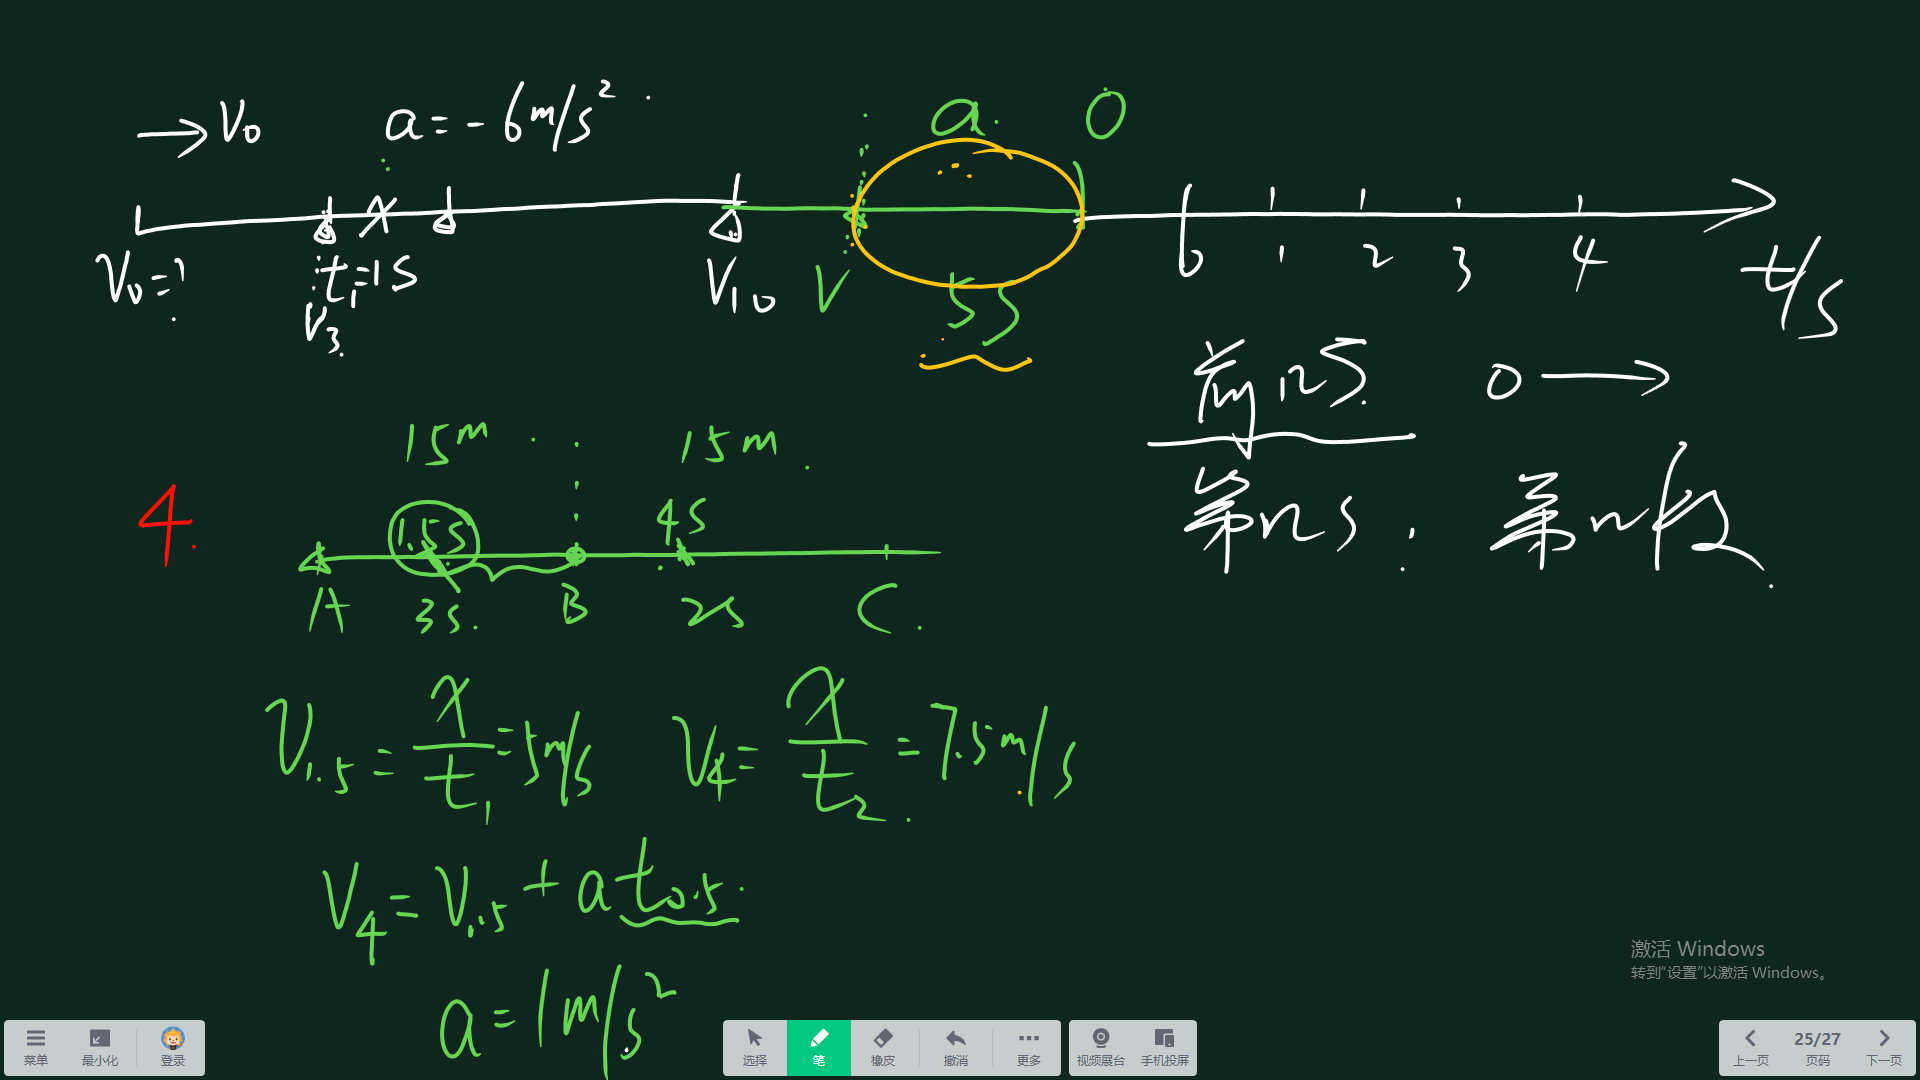 →V₀ a=-6m/s² a 0
V₀=? t₁=1s V₃ V₁₀ V 5s 0 1 2 3 4 t/s
前ns 0→
第ns 第n段
15m 15m
4. 1.5s 4s
A 3s B 2s C
V₁.₅=x/t₁=5m/s V₄=x/t₂=7.5m/s
V₄=V₁.₅+at₀.₅
a=1m/s²
激活 Windows
转到“设置”以激活 Windows。
菜单 最小化 登录 选择 笔 橡皮 撤消 更多 视频展台 手机投屏 上一页 25/27 页码 下一页